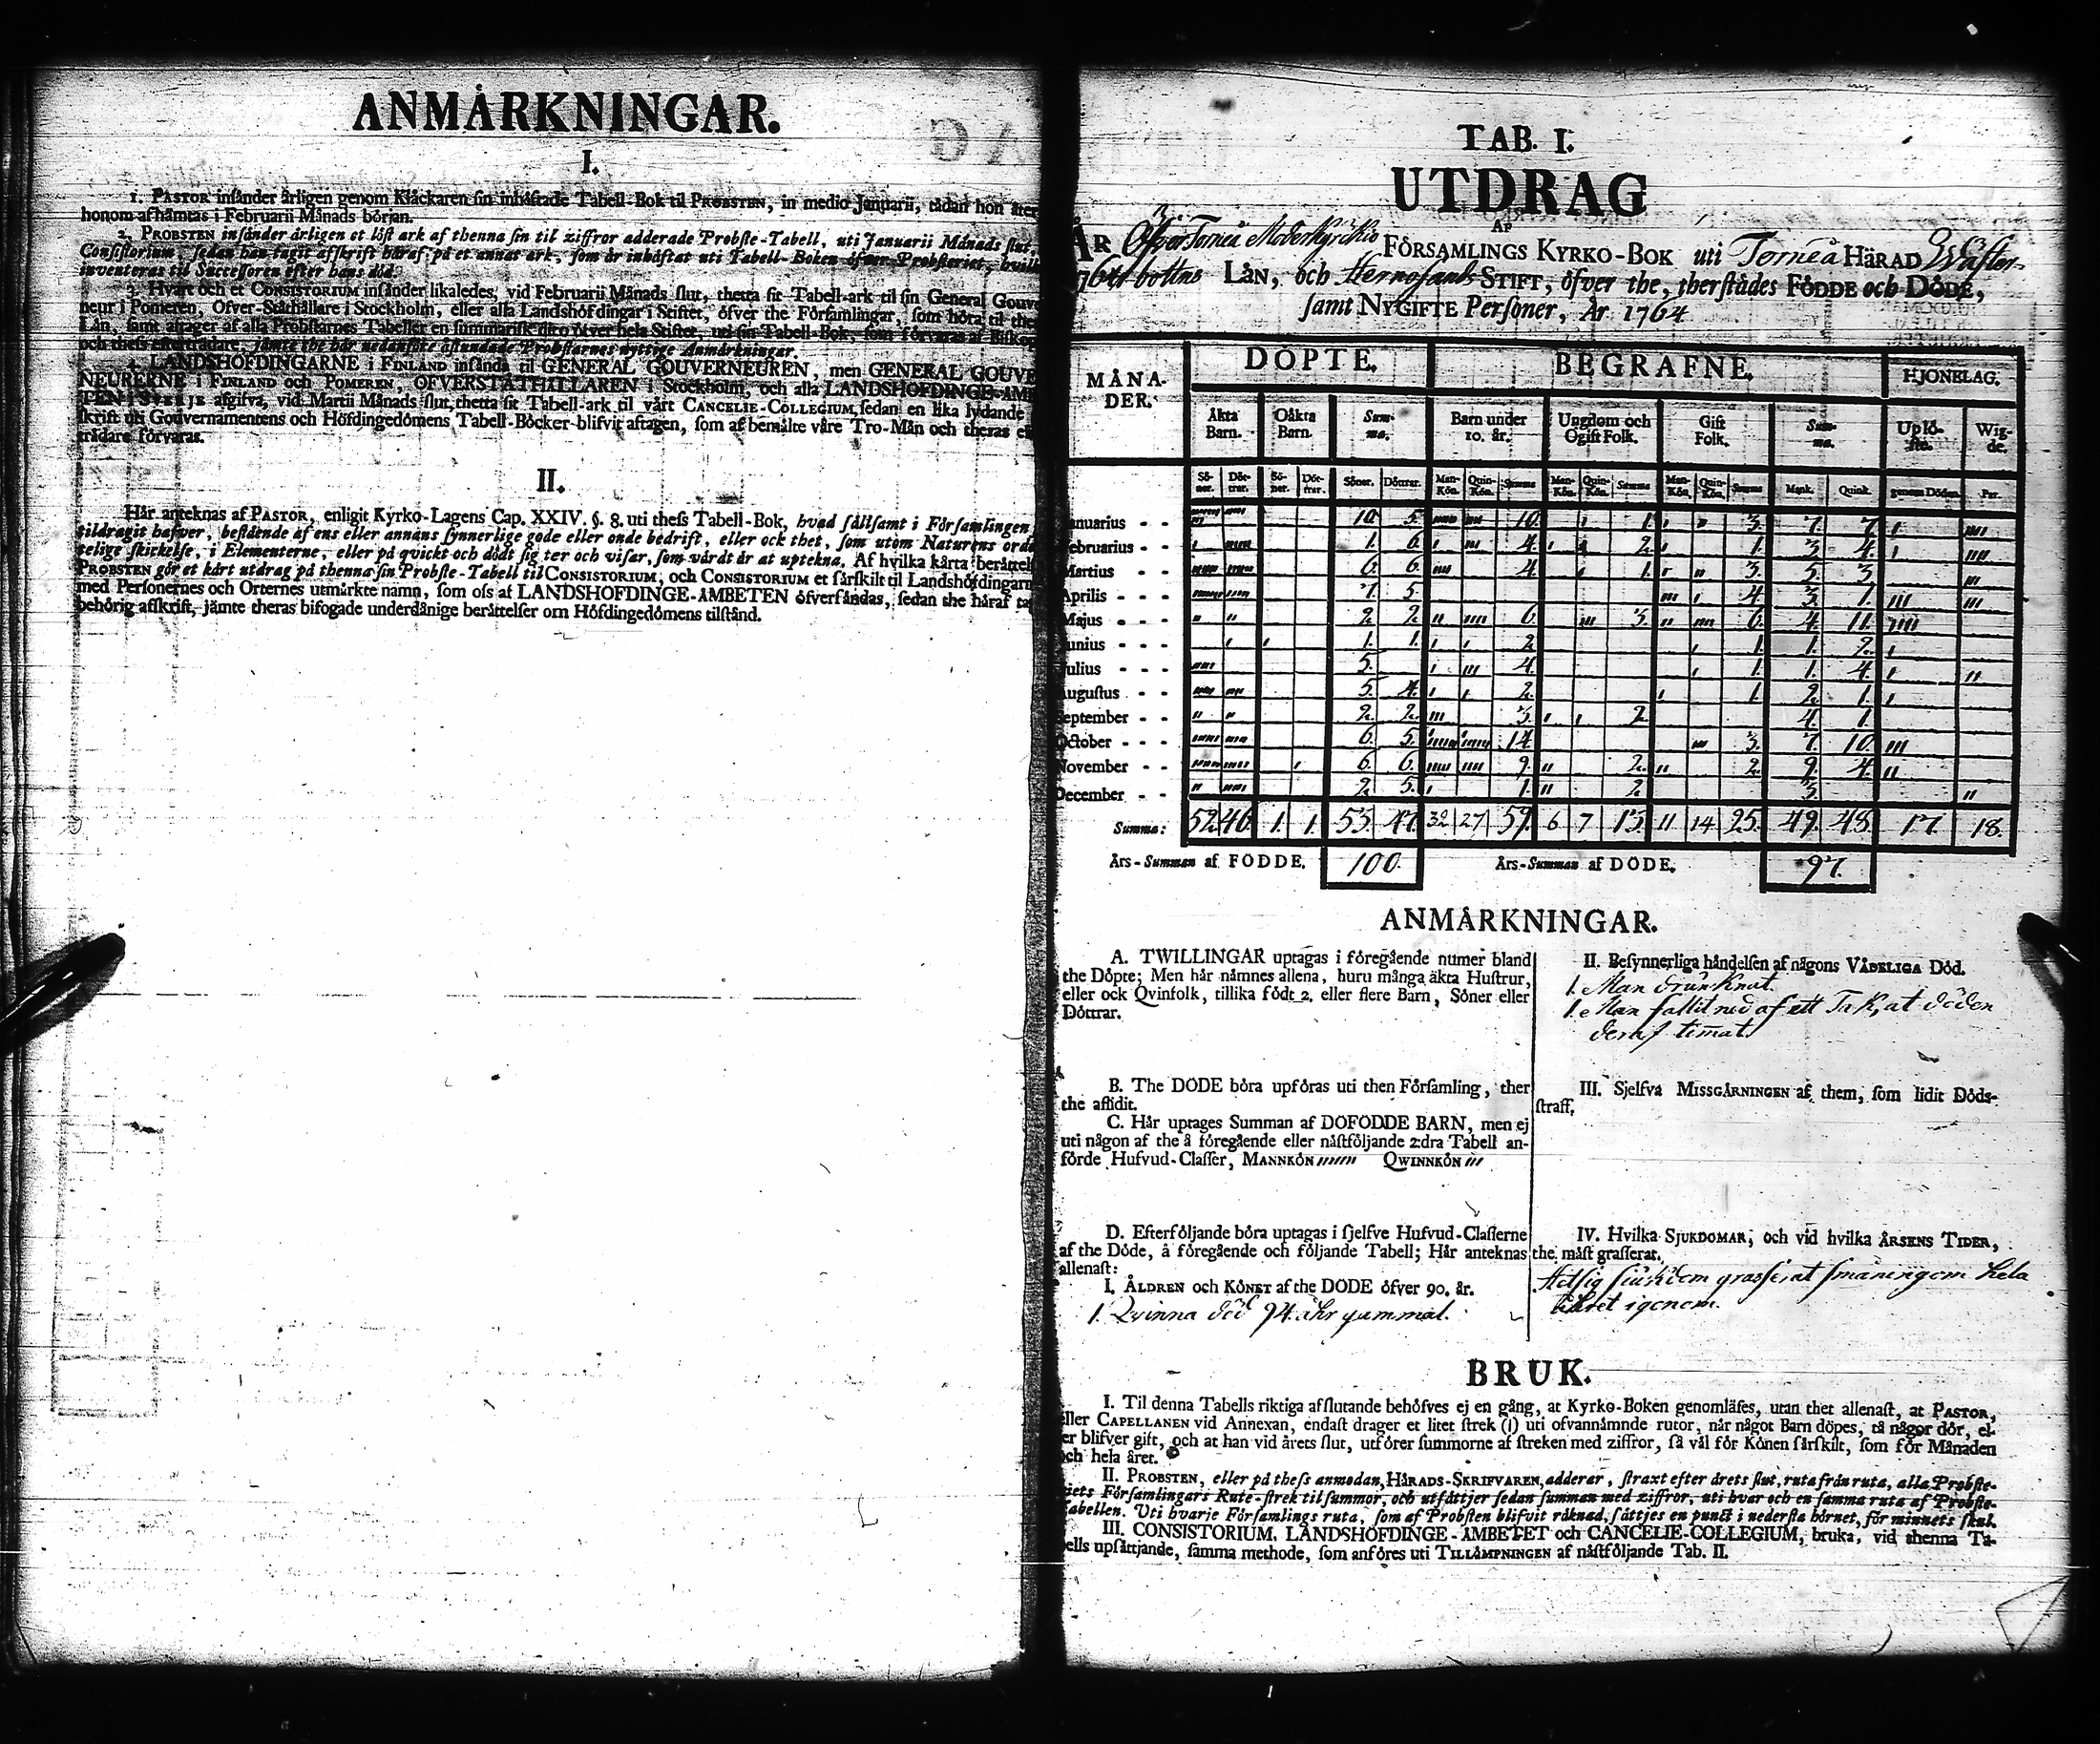 ANMÅRKNINGAR.
I.
1. PASTOR insånder årligen genom Klåckaren sin inhåftade Tabell-Bok til PROBSTEN, in medio Januarii, tådan hon åter
honom afhåmtas i Februarii Månads början.
2. PROBSTEN insånder årligen et löst ark af thenna sin til ziffror adderade Probste-Tabell, uti Januarii Månads slut,
Consistorium, sedan han tagit afskrift håraf på et annat ark, som år inhåftat uti Tabell-Boken öfver Probsteriet, hvilk
inventeras til Successoren efter hans död.
3. Hvart och et CONSISTORIUM insånder likaledes, vid Februarii Månads slut, thetta sit Tabell-ark til sin General Gouve
neur i Pomeren, Öfver-Ståthållare i Stockholm, eller alla Landshöfdingar i Stiftet, öfver the Församlingar, som höra til the
Lån, samt aftager af alla Probstarnes Tabeller en summarisk dito öfver hela Stiftet, uti sin Tabell-Bok, som förvaras af Biskop
och thess eftertrådare, jåmte the hår nedanföre åstundade Probstarnes nyttige Anmårkningar.
4. LANDSHÖFDINGARNE i FINLAND insånda til GENERAL GOUVERNEUREN, men GENERAL GOUVE
NEURERNE i FINLAND och POMEREN, ÖFVERSTÅTHÅLLAREN i Stockholm, och alla LANDSHÖFDINGE-ÅMB
TEN I SVERJE afgifva, vid Martii Månads slut, thetta sit Tabell-ark til vårt CANCELIE-COLLEGIUM, sedan en lika lydande
skrift uti Gouvernamentens och Höfdingedömens Tabell-Böcker blifvit aftagen, som af bemålte våre Tro-Mån och theras ef
trådare förvaras.
II.
Hår anteknas af PASTOR, enligit Kyrko-Lagens Cap. XXIV. §. 8. uti thess Tabell-Bok, hvad sållsamt i Församlingen
tildragit hafver, bestående af ens eller annans synnerlige gode eller onde bedrift, eller ock thet, som utom Naturens orde
telige skickelse, i Elementerne, eller på qvickt och dödt sig ter och visar, som vårdt år at uptekna. Af hvilka kårta beråttel
PROBSTEN gör et kårt utdrag på thenna sin Probste-Tabell til CONSISTORIUM, och CONSISTORIUM et sårskilt til Landshöfdingarn
med Personernes och Orternes utmårkte namn, som oss af LANDSHÖFDINGE-ÅMBETEN öfversåndas, sedan the håraf ta
behörig afskrift, jåmte theras bifogade underdånige beråttelser om Höfdingedömens tilstånd.
TAB. I.
UTDRAG
AF
ÅR Öfver Torneå Moderkyrkio FÖRSAMLINGS KYRKO-BOK uti Torneå HÄRAD Wäster-
1764 bottns LÅN, och Hernösands STIFT, öfver the, therstådes FÖDDE och DÖDE,
samt NYGIFTE Personer, År 1764
MÅNA-DER. DÖPTE. BEGRAFNE. HJONELAG.
Åkta Barn. Oåkta Barn. Sum-ma. Barn under 10. år. Ungdom och Ogift Folk. Gift Folk. Sum-ma. Uplö-ste. Wig-de.
Sö-ner. Döt-trar. Sö-ner. Döt-trar. Söner. Döttrar. Man-Kön. Quin-Kön. Summa Man-Kön. Quin-Kön. Summa Man-Kön. Quin-Kön. Summa Mank. Quink. genom Döden. Par.
anuarius - - 10. 5. 10. 1. 3. 7. 7.
ebruarius - - 1. 6. 4. 2. 1. 3. 4.
Martius - - 6. 6. 4. 1. 3. 5. 3
Aprilis - - - 7. 5. 4. 3. 1.
Majus - - - 2. 2. 6. 3. 6. 4. 11.
unius - - - 1. 1. 2 1. 1. 2.
ulius - - - 5. 4. 1. 1. 4.
Augustus - - 5. 4. 2. 1 2. 1.
September - - 2. 2. 3. 2 4. 1
October - - - 6. 5. 14 3. 7. 10.
November - - 6. 6. 9. 2. 2. 9. 4.
December - - 2. 5. 1. 2 3.
Summa: 52 46. 1. 1. 53. 47. 32 27 59. 6 7 13. 11 14 25. 49. 48. 17. 18.
Års-Summan af FÖDDE. 100. Års-Summan af DÖDE. 97.
ANMÅRKNINGAR.
A. TWILLINGAR uptagas i föregående numer bland
the Döpte; Men hår nåmnes allena, huru många åkta Hustrur,
eller ock Qvinfolk, tillika födt 2. eller flere Barn, Söner eller
Döttrar.
B. The DÖDE böra upföras uti then Församling, ther
the aflidit.
C. Hår uptages Summan af DÖFÖDDE BARN, men ej
uti någon af the å föregående eller nåstföljande 2:dra Tabell an-
förde Hufvud-Classer, MANNKÖN ////// QWINNKÖN ///
D. Efterföljande böra uptagas i sjelfve Hufvud-Classerne
af the Döde, å föregående och följande Tabell; Hår anteknas
allenast:
I. ÅLDREN och KÖNET af the DÖDE öfver 90. år.
1. Qvinna död 94. åhr gammal.
II. Besynnerliga håndelser af någons VÅDELIGA Död.
1. Man drunknat.
1. Man fallit ned af ett Tak, at döden
deraf timat.
III. Sjelfva MISSGÅRNINGEN af them, som lidit Döds-
straff.
IV. Hvilka SJUKDOMAR, och vid hvilka ÅRSENS TIDER,
the måst grasserat.
Hetsig siukdom grasserat småningom hela
åhret igenom.
BRUK.
I. Til denna Tabells riktiga afslutande behöfves ej en gång, at Kyrko-Boken genomlåses, utan thet allenast, at PASTOR,
eller CAPELLANEN vid Annexan, endast drager et litet strek (|) uti ofvannåmnde rutor, når något Barn döpes, tå någor dör, el-
er blifver gift, och at han vid årets slut, utförer summorne af streken med ziffror, så vål för Könen sårskilt, som för Månaden
och hela året.
II. PROBSTEN, eller på thess anmodan, HÅRADS-SKRIFVAREN, adderar, straxt efter årets slut, ruta från ruta, alla Probste-
riets Församlingars Rute-strek til summor, och utsåttjer sedan summan med ziffror, uti hvar och en samma ruta af Probste-
Tabellen. Uti hvarje Församlings ruta, som af Probsten blifvit råknad, såttjes en punct i nedersta hörnet, för minnets skul.
III. CONSISTORIUM, LANDSHÖFDINGE-ÅMBETET och CANCELIE-COLLEGIUM, bruka, vid thenna Ta-
ells upsåttjande, samma methode, som anföres uti TILLÅMPNINGEN af nåstföljande Tab. II.